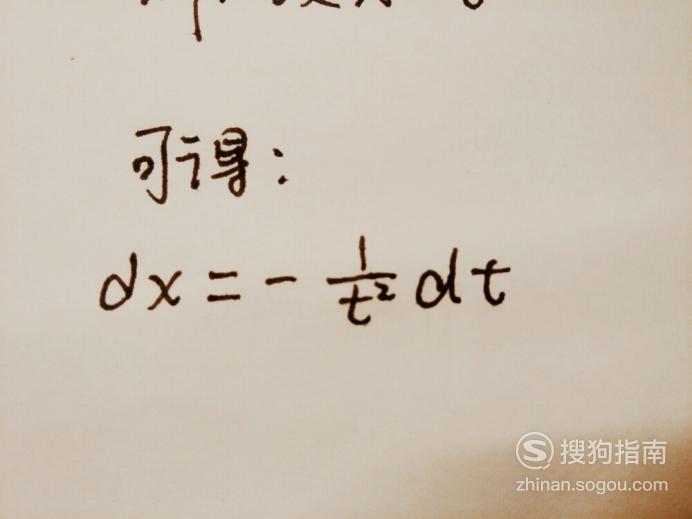 可得:
dx = - 1/t² dt
搜狗指南
zhinan.sogou.com